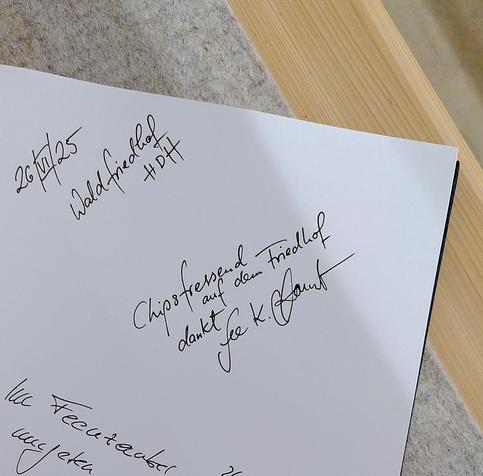 26/VII/25
Waldfriedhof
HDH
Chipsfressend
auf dem Friedhof
dankt
K.
Im Feenzauber